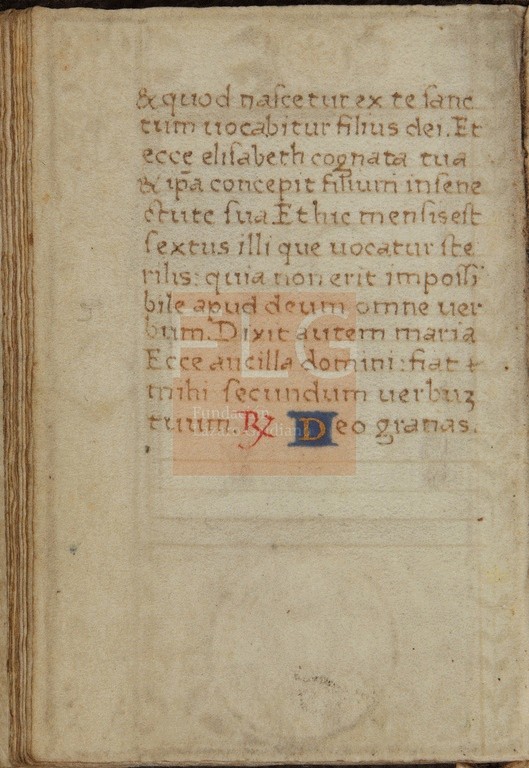 & quod nascetur ex te sanc
tum uocabitur filius dei. Et
ecce elisabeth cognata tua
& ip̃a concepit filium in sene
ctute sua. Et hic mensis est
sextus illi que uocatur ste
rilis: quia non erit impossi
bile apud deum omne uer
bum. Dixit autem maria
Ecce ancilla domini: fiat
mihi secundum uerbuʒ
tuum. ℞ Deo gratias.
FLG
Fundación
Lázaro Galdiano